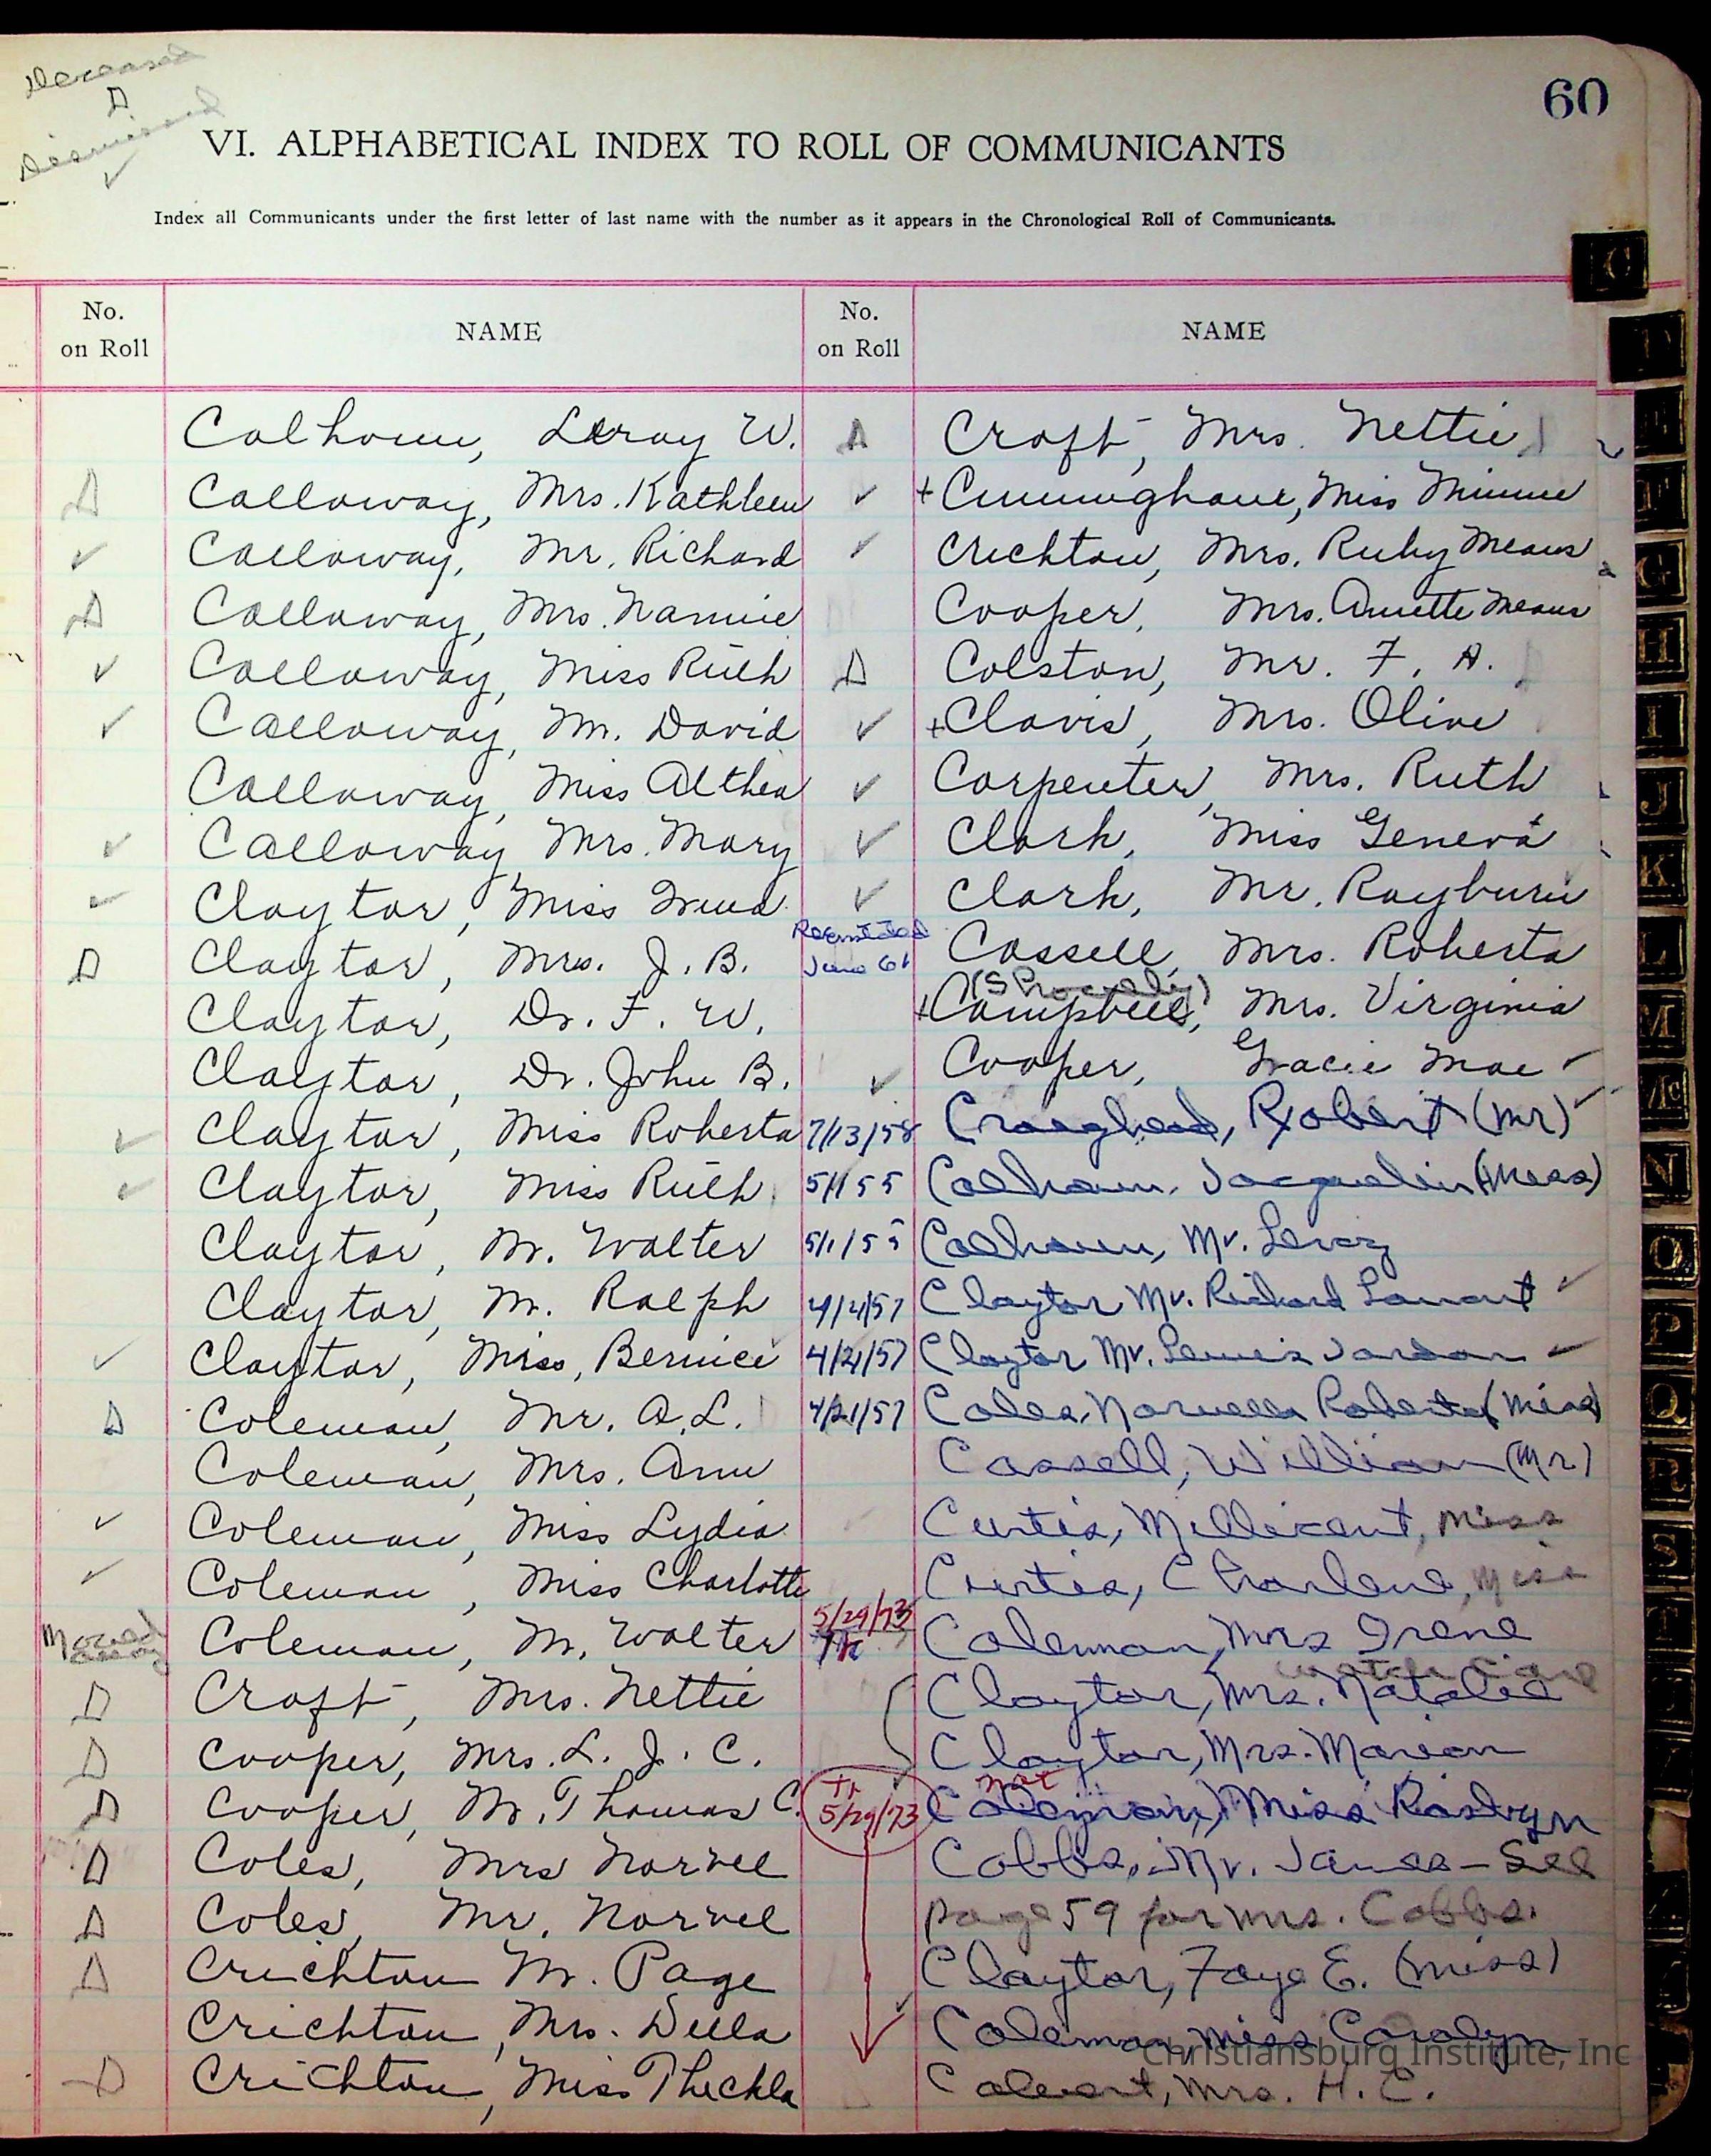 Deceased
D
Dismissed
✓
60
VI. ALPHABETICAL INDEX TO ROLL OF COMMUNICANTS
Index all Communicants under the first letter of last name with the number as it appears in the Chronological Roll of Communicants.
C
No. on Roll
NAME
No. on Roll
NAME
Calhoun, Leroy W.
D Calloway, Mrs. Kathleen
✓ Calloway, Mr. Richard
D Calloway, Mrs. Nannie
✓ Calloway, Miss Ruth
✓ Calloway, M. David
Calloway, Miss Althea
✓ Calloway, Mrs. Mary
✓ Claytor, Miss Irma
D Claytor, Mrs. J. B.
Claytor, Dr. F. W.
Claytor, Dr. John B.
✓ Claytor, Miss Roberta
✓ Claytor, Miss Ruth
Claytor, M. Walter
Claytor, M. Ralph
✓ Claytor, Miss, Bernice
D Coleman, Mr. A. L.
Coleman, Mrs. Ann
✓ Coleman, Miss Lydia
✓ Coleman, Miss Charlotte
Moved away Coleman, M. Walter
D Croft, Mrs. Nettie
D Cooper, Mrs. L. J. C.
D Cooper, M. Thomas C.
D Coles, Mrs Norvel
D Coles, Mr. Norvel
D Crichton M. Page
Crichton, Mrs. Della
D Crichton, Miss Theckla
D Croft, Mrs. Nettie
✓ + Cunninghame, Miss Minnie
✓ Crichton, Mrs. Ruby Means
Cooper, Mrs. Annette Means
D Colston, Mr. F. A.
✓ + Clavis, Mrs. Olive
✓ Carpenter, Mrs. Ruth
✓ Clark, Miss Geneva
✓ Clark, Mr. Rayburn
Reinstated June 61 Cassell, Mrs. Roberta
+ Campbell, Mrs. Virginia
✓ Cooper, Gracie Mae ✓
7/13/58 Craighead, Robert (Mr) ✓
5/1/55 Calhoun, Jacquelin (Miss)
5/1/55 Calhoun, Mr. Leroy
4/21/57 Claytor Mr. Richard Lamont ✓
4/21/57 Claytor Mr. Lewis Jordan ✓
4/21/57 Coles, Norvella Roberta (Miss)
Cassell, William (Mr)
Curtis, Millicent, Miss
Curtis, Charlene, Miss
5/29/73 Tr Coleman, Mrs Irene
Claytor, Mrs. Natalie
Claytor, Mrs. Marion
Tr 5/29/73 not
Coleman, Miss Roslyn
Cobbs, Mr. James - See
page 59 for Mrs. Cobbs.
Claytor, Faye E. (Miss)
✓ Coleman, Miss Carolyn
Calvert, Mrs. H. C.
D
F
G
H
I
J
K
L
M
Mc
N
O
P
Q
R
S
T
Christiansburg Institute, Inc